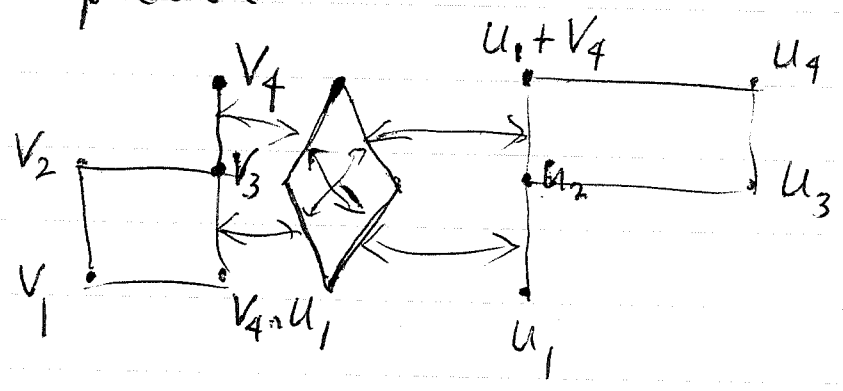 V4
u1 + V4
u4
V2
V3
u2
u3
V1
V4 ∩ u1
u1